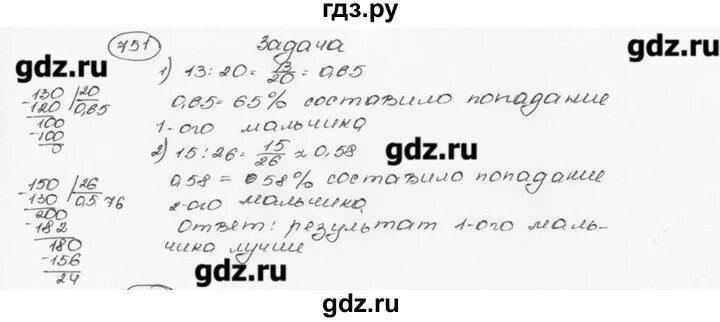 гдз.ру
751 Задача
gdz.ru
1) 13 : 20 = 13/20 = 0,65
130 | 20
-120 | 0,65
100
-100
0
0,65 = 65% составило попадание
1-ого мальчика
gdz.ru
2) 15 : 26 = 15/26 ≈ 0,58
150 | 26
-130 | 0,576
200
-182
180
-156
24
0,58 = 58% составило попадание
2-ого мальчика
Ответ: результат 1-ого маль-
чика лучше
gdz.ru
gdz.ru
gdz.ru